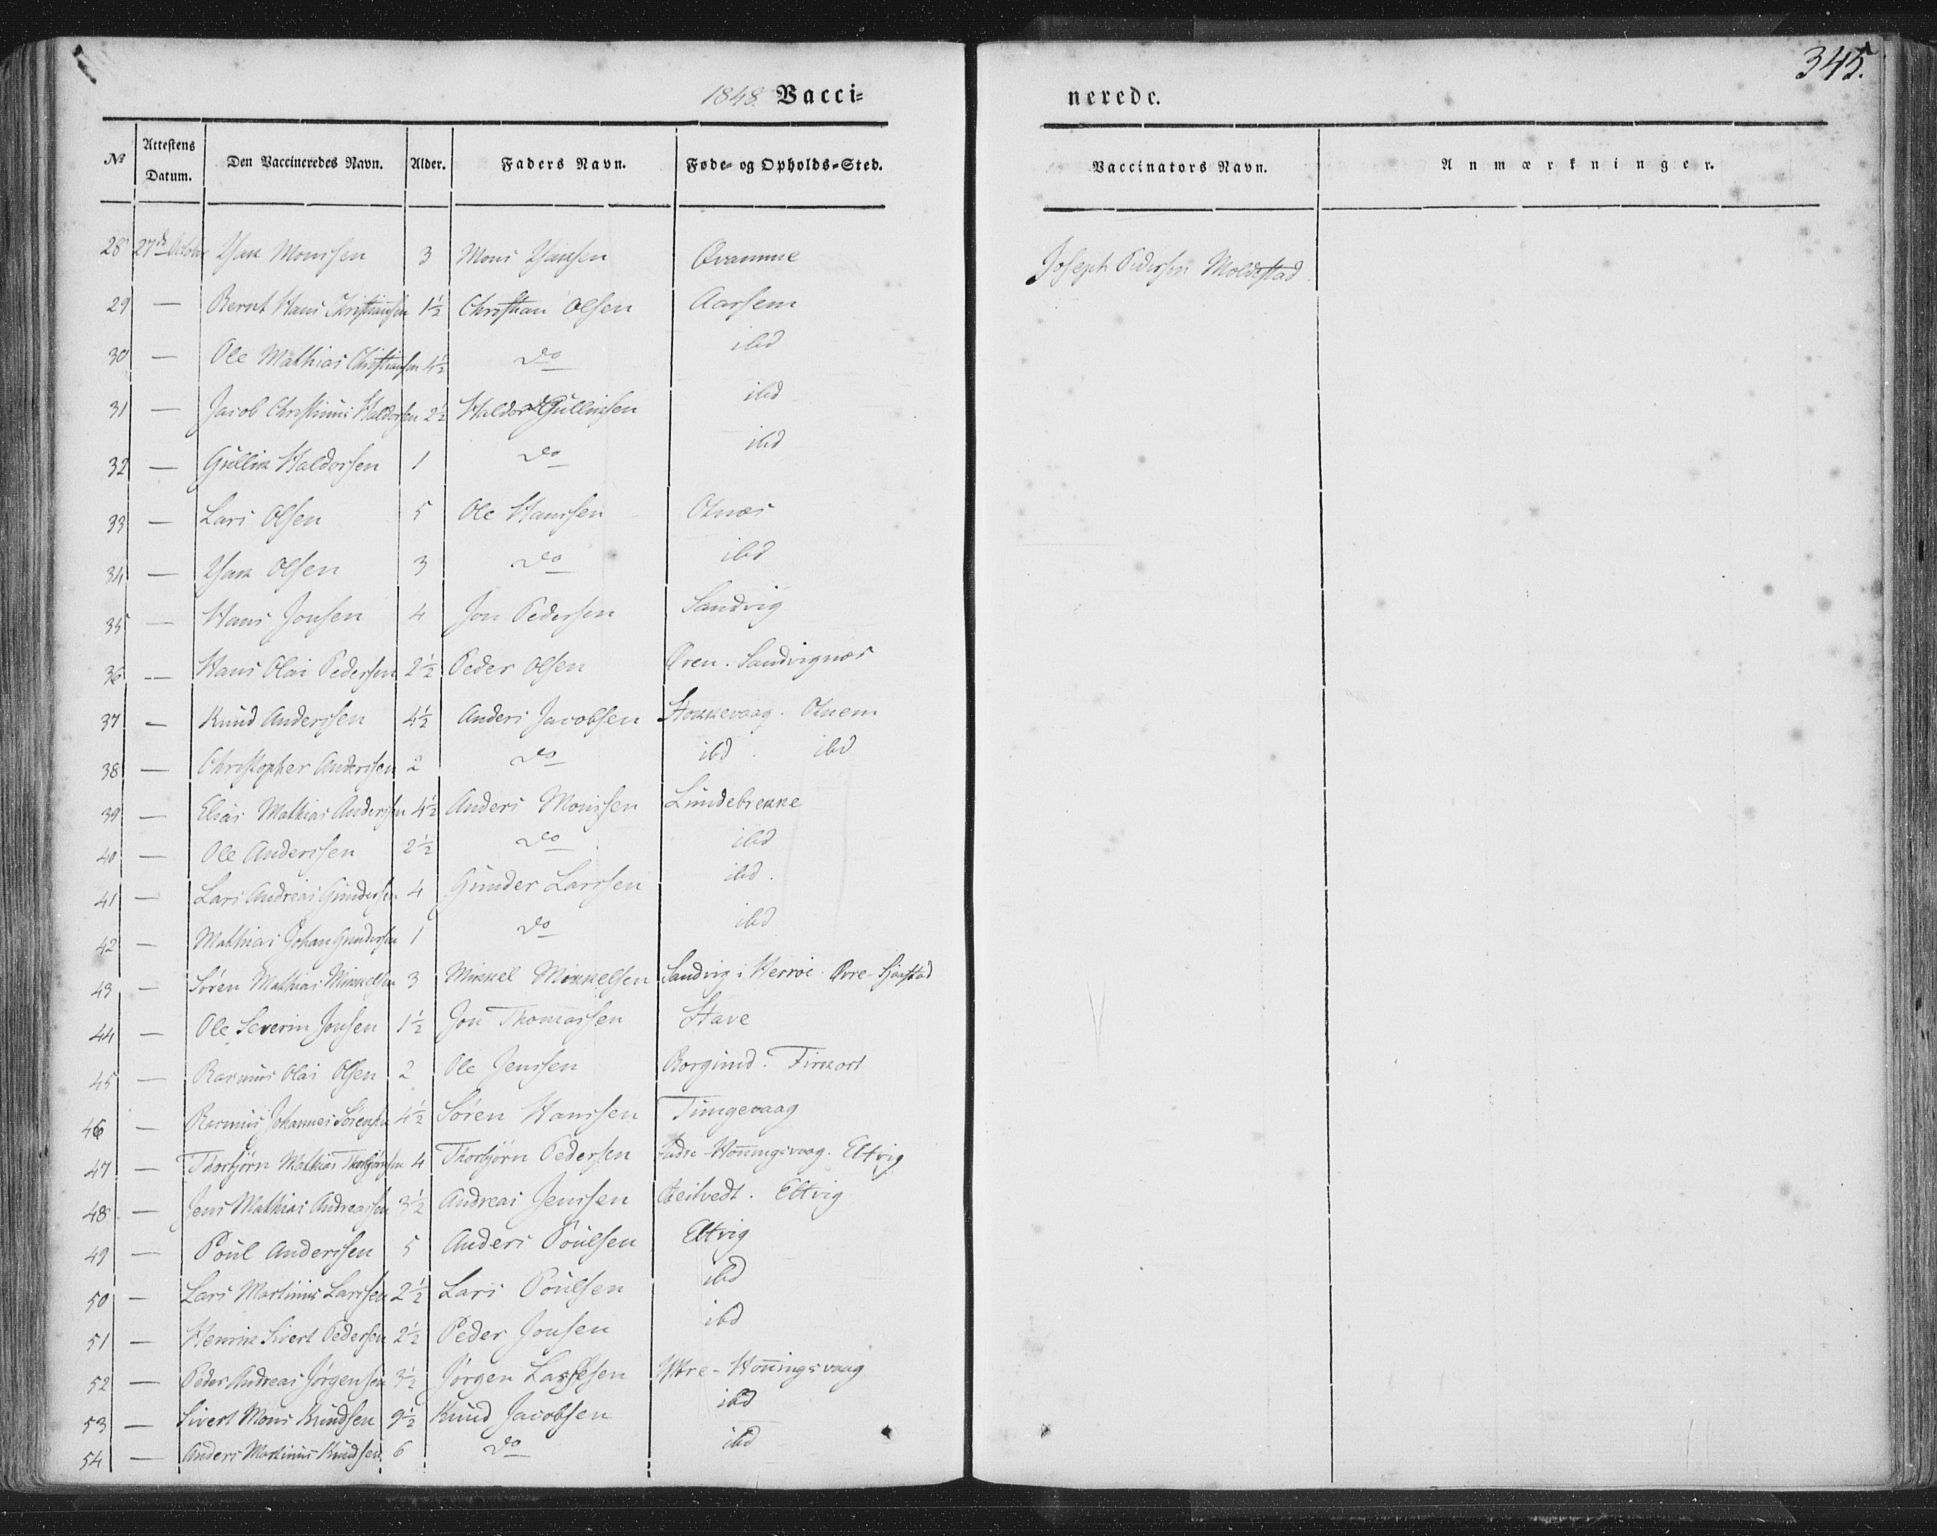 345.
1848. Vacci=
nerede.
№ Attestens Datum. Den Vaccineredes Navn. Alder. Faders Navn. Føde- og Opholds-Sted.
Vaccinators Navn. Anmærkninger.
28 27de October Isak Monssen 3 Mons Isaksen Qvamme Joseph Pedersen Moldestad.
29 — Bernt Hans Christiansen 1½ Christian Olsen Aarsem
30 — Ole Mathias Christiansen 4½ do ibd
31 — Jacob Christinus Haldorsen 2½ Haldor Gulliksen ibd
32 — Gullik Haldorsen 1 do ibd
33 — Lars Olsen 5 Ole Hanssen Otnæs
34 — Isak Olsen 3 do ibd
35 — Hans Jonsen 4 Jon Pedersen Sandvig
36 — Hans Olai Pedersen 2½ Peder Olsen Øren. Sandvignæs
37 — Knud Anderssen 4½ Anders Jacobsen Stokkevaag. Otnem
38 — Christopher Anderssen 2 do ibd. ibd
39 — Elias Mathias Anderssen 4½ Anders Monssen Lundebrekke
40 — Ole Anderssen 2½ do ibd
41 — Lars Andreas Gundersen 4 Gunder Larssen ibd.
42 — Mathias Johan Gundersen 1 do ibd
43 — Søren Mathias Mikkelsen 3 Mikkel Mikkelsen Sandvig i Herrøe.
44 — Ole Severin Jonsen 1½ Jon Thomassen Stave
45 — Rasmus Olai Olsen 2 Ole Jenssen Borgund.
46 — Rasmus Johannes Sørensen 4½ Søren Hanssen Tungevaag
47 — Thorbjørn Mathias Thorbjørnsen 4 Thorbjørn Pedersen Indre-Honningsvaag. Eltvig
48 — Jens Mathias Andreassen 3½ Andreas Jenssen Eltvig
49 — Poul Anderssen 5 Anders Poulsen Eltvig
50 — Lars Martinus Larssen 2½ Lars Poulsen ibd
51 — Henrik Sivert Pedersen 2½ Peder Jonsen ibd
52 — Peder Andreas Jørgensen 3½ Jørgen Lassesen Yttre-Honningsvaag
53 — Sivert Mons Knudsen 9½ Knud Jacobsen ibd
54 — Anders Martinus Knudsen 6 do ibd